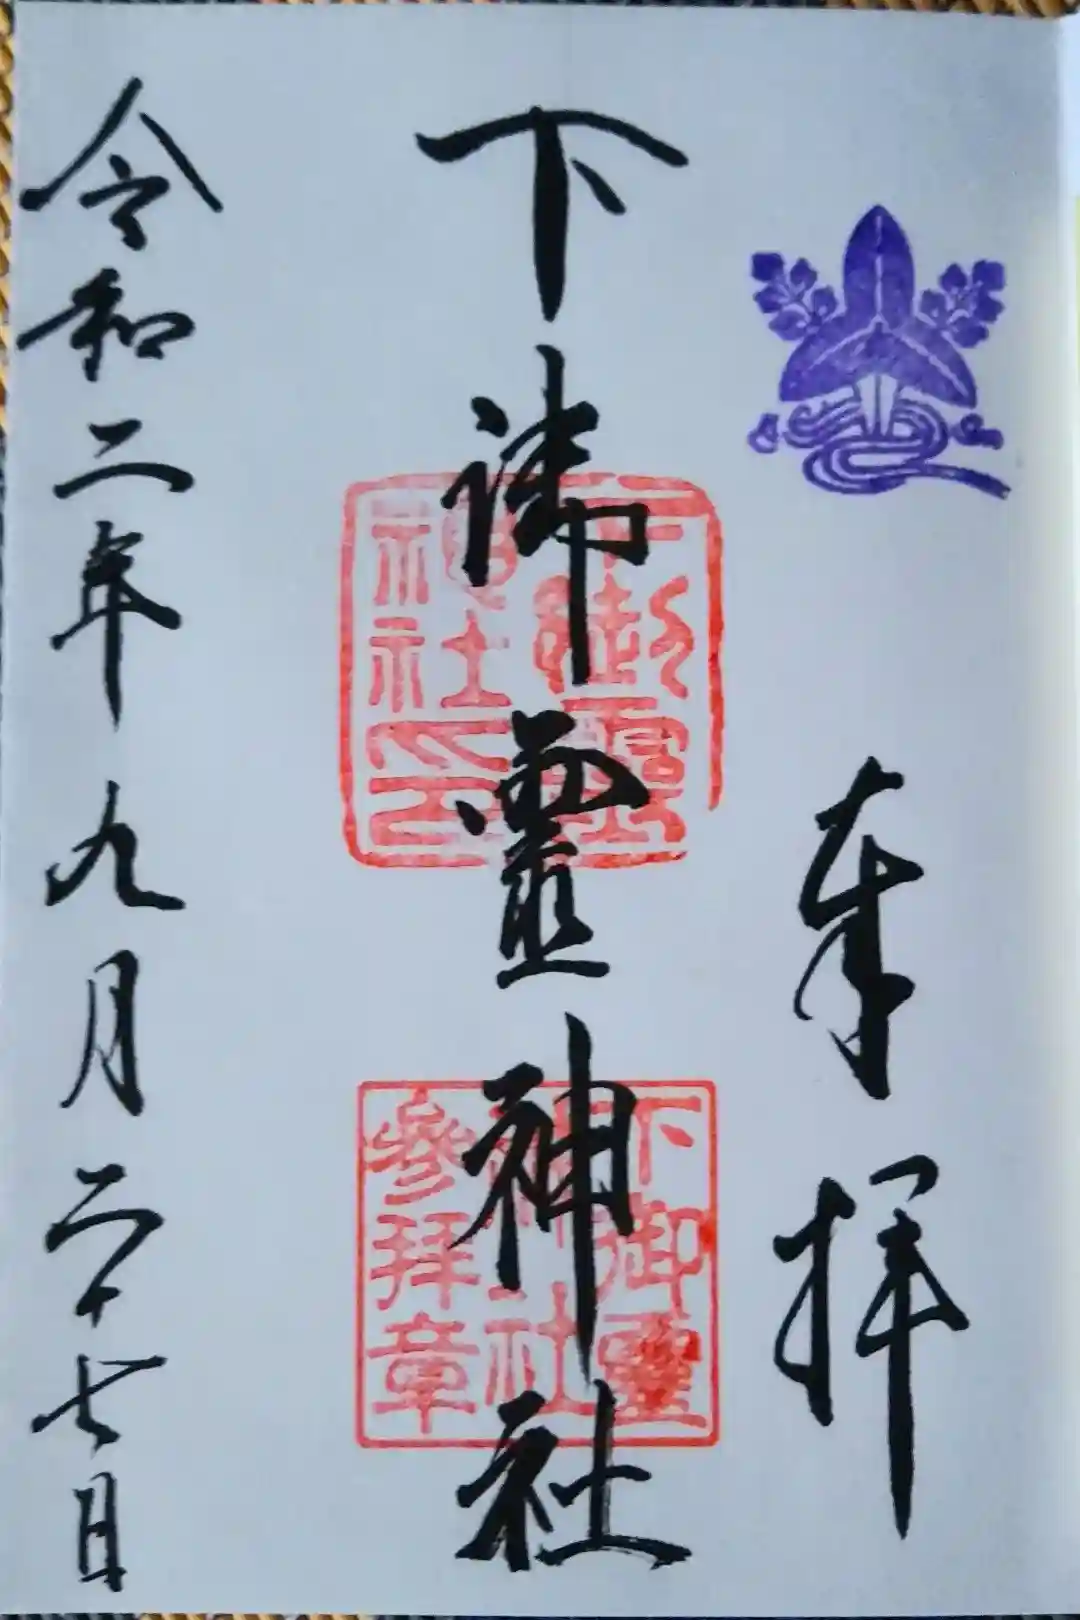 奉拝
下御靈神社
下御霊
神社印
下御靈
神社
參拜章
令和二年九月二十七日